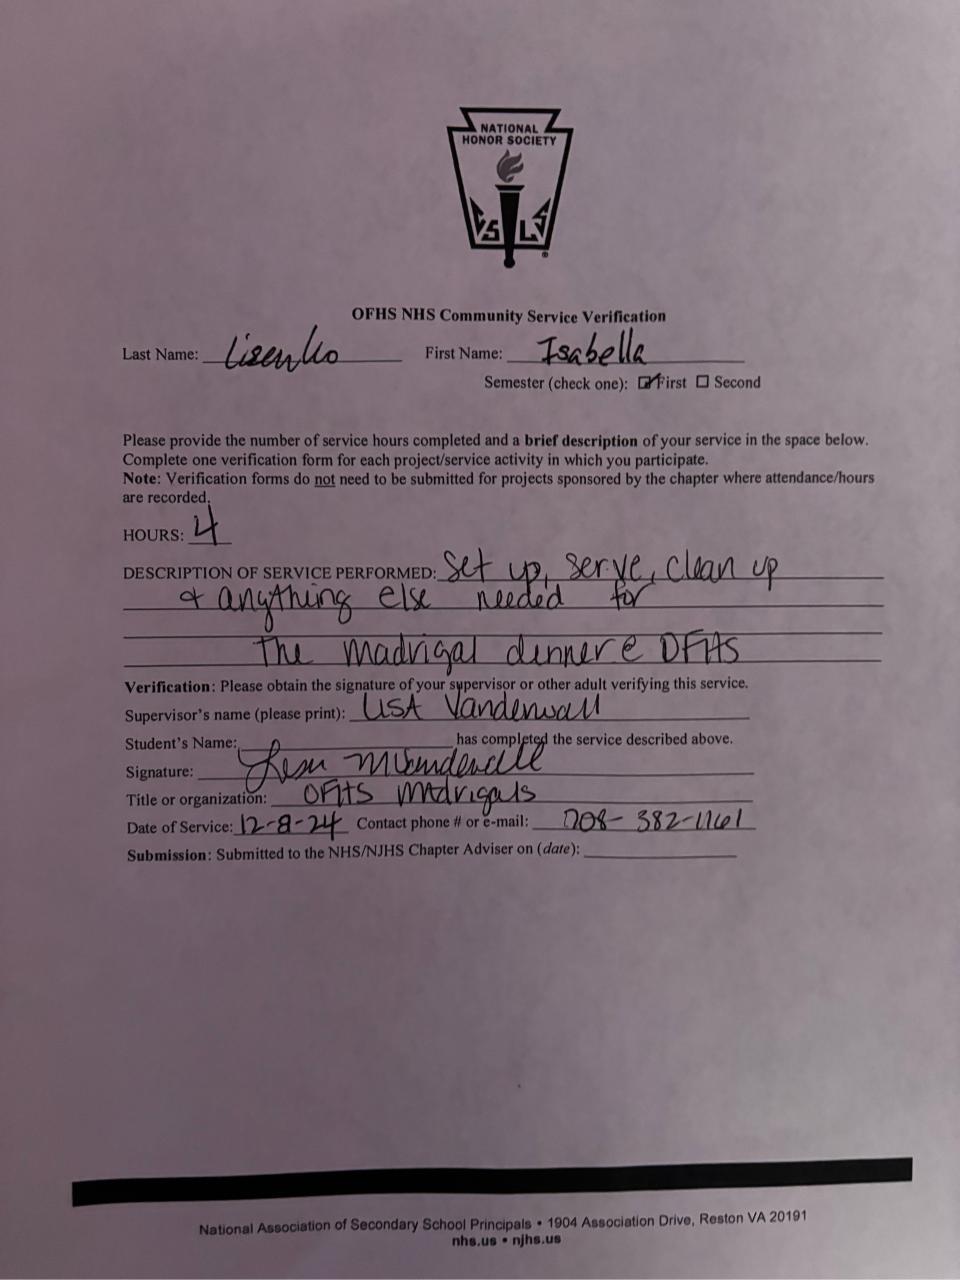 NATIONAL
HONOR SOCIETY
C S L S
®
OFHS NHS Community Service Verification
Last Name: Lisenko First Name: Isabella
Semester (check one): ☑ First ☐ Second
Please provide the number of service hours completed and a brief description of your service in the space below.
Complete one verification form for each project/service activity in which you participate.
Note: Verification forms do not need to be submitted for projects sponsored by the chapter where attendance/hours
are recorded.
HOURS: 4
DESCRIPTION OF SERVICE PERFORMED: Set up, serve, clean up
& anything else needed for
the madrigal dinner @ OFHS
Verification: Please obtain the signature of your supervisor or other adult verifying this service.
Supervisor's name (please print): LISA Vanderwall
Student's Name: has completed the service described above.
Signature:
Title or organization: OFHS Madrigals
Date of Service: 12-8-24 Contact phone # or e-mail: 708-382-1161
Submission: Submitted to the NHS/NJHS Chapter Adviser on (date):
National Association of Secondary School Principals • 1904 Association Drive, Reston VA 20191
nhs.us • njhs.us